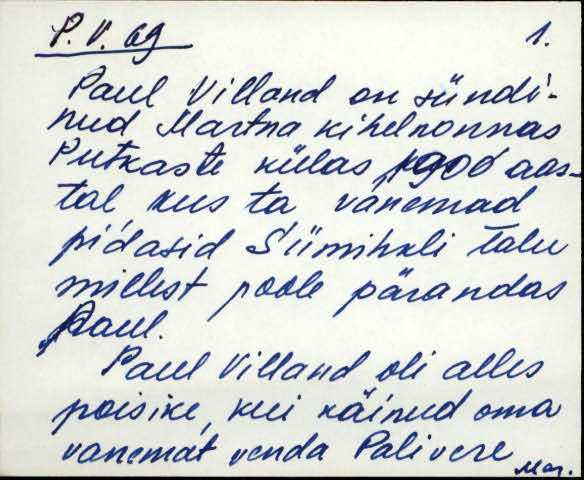 P. V. 69 1.
Paul Villand on sündi-
nud Martna kihelkonnas
Putkaste külas 1900 aas-
tal, kus ta vanemad
pidasid Siimihkli talu
millest poole pärandas
Paul.
Paul Villand oli alles
poisike, kui käinud oma
vanemat venda Palivere
Mar.